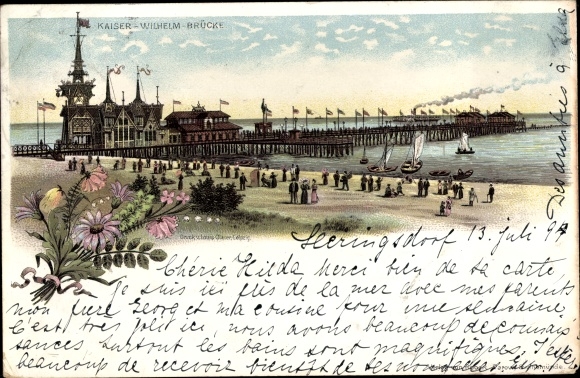 KAISER-WILHELM-BRÜCKE
Heeringsdorf 13. juli 97
Chérie Hilda Merci bien de ta carte
Je suis ici près de la mer avec mes parents
mon frere Georg et ma cousine pour une semaine,
C'est tres joli ici, nous avons beaucoup de connais
sances surtout les bains sont magnifiques. J'espère
beaucoup de recevoir bientôt de tes nouvelles
Des amitiés à